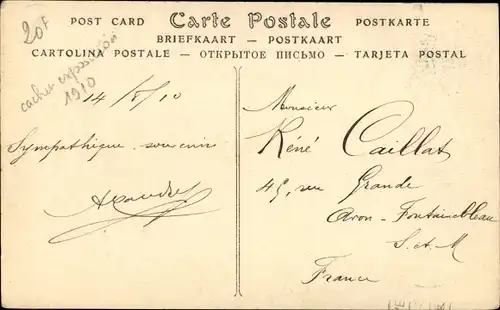 POST CARD Carte Postale POSTKARTE
BRIEFKAART — POSTKAART
CARTOLINA POSTALE — ОТКРЫТОЕ ПИСЬМО — TARJETA POSTAL
20F
cachet exposition
1910
14/8/10
Sympathique souvenir
Monsieur
Réné Caillat
45, rue Grande
Avon - Fontainebleau
S. et. M
France